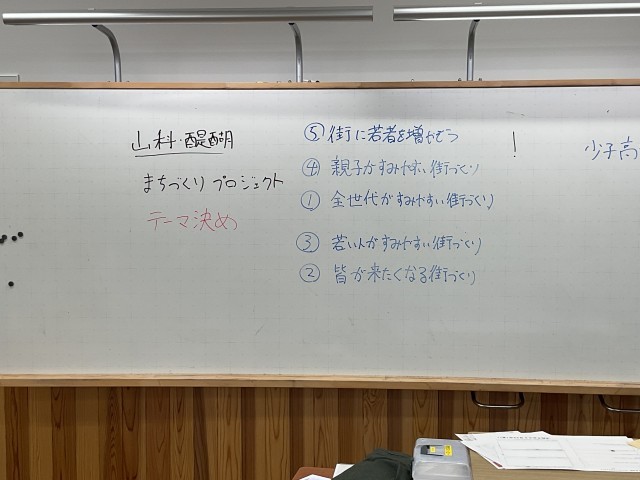 山科・醍醐
まちづくり プロジェクト
テーマ決め
⑤ 街に若者を増やそう
④ 親子がすみやすい街づくり
① 全世代がすみやすい街づくり
③ 若い人がすみやすい街づくり
② 皆が来たくなる街づくり
!
少子高